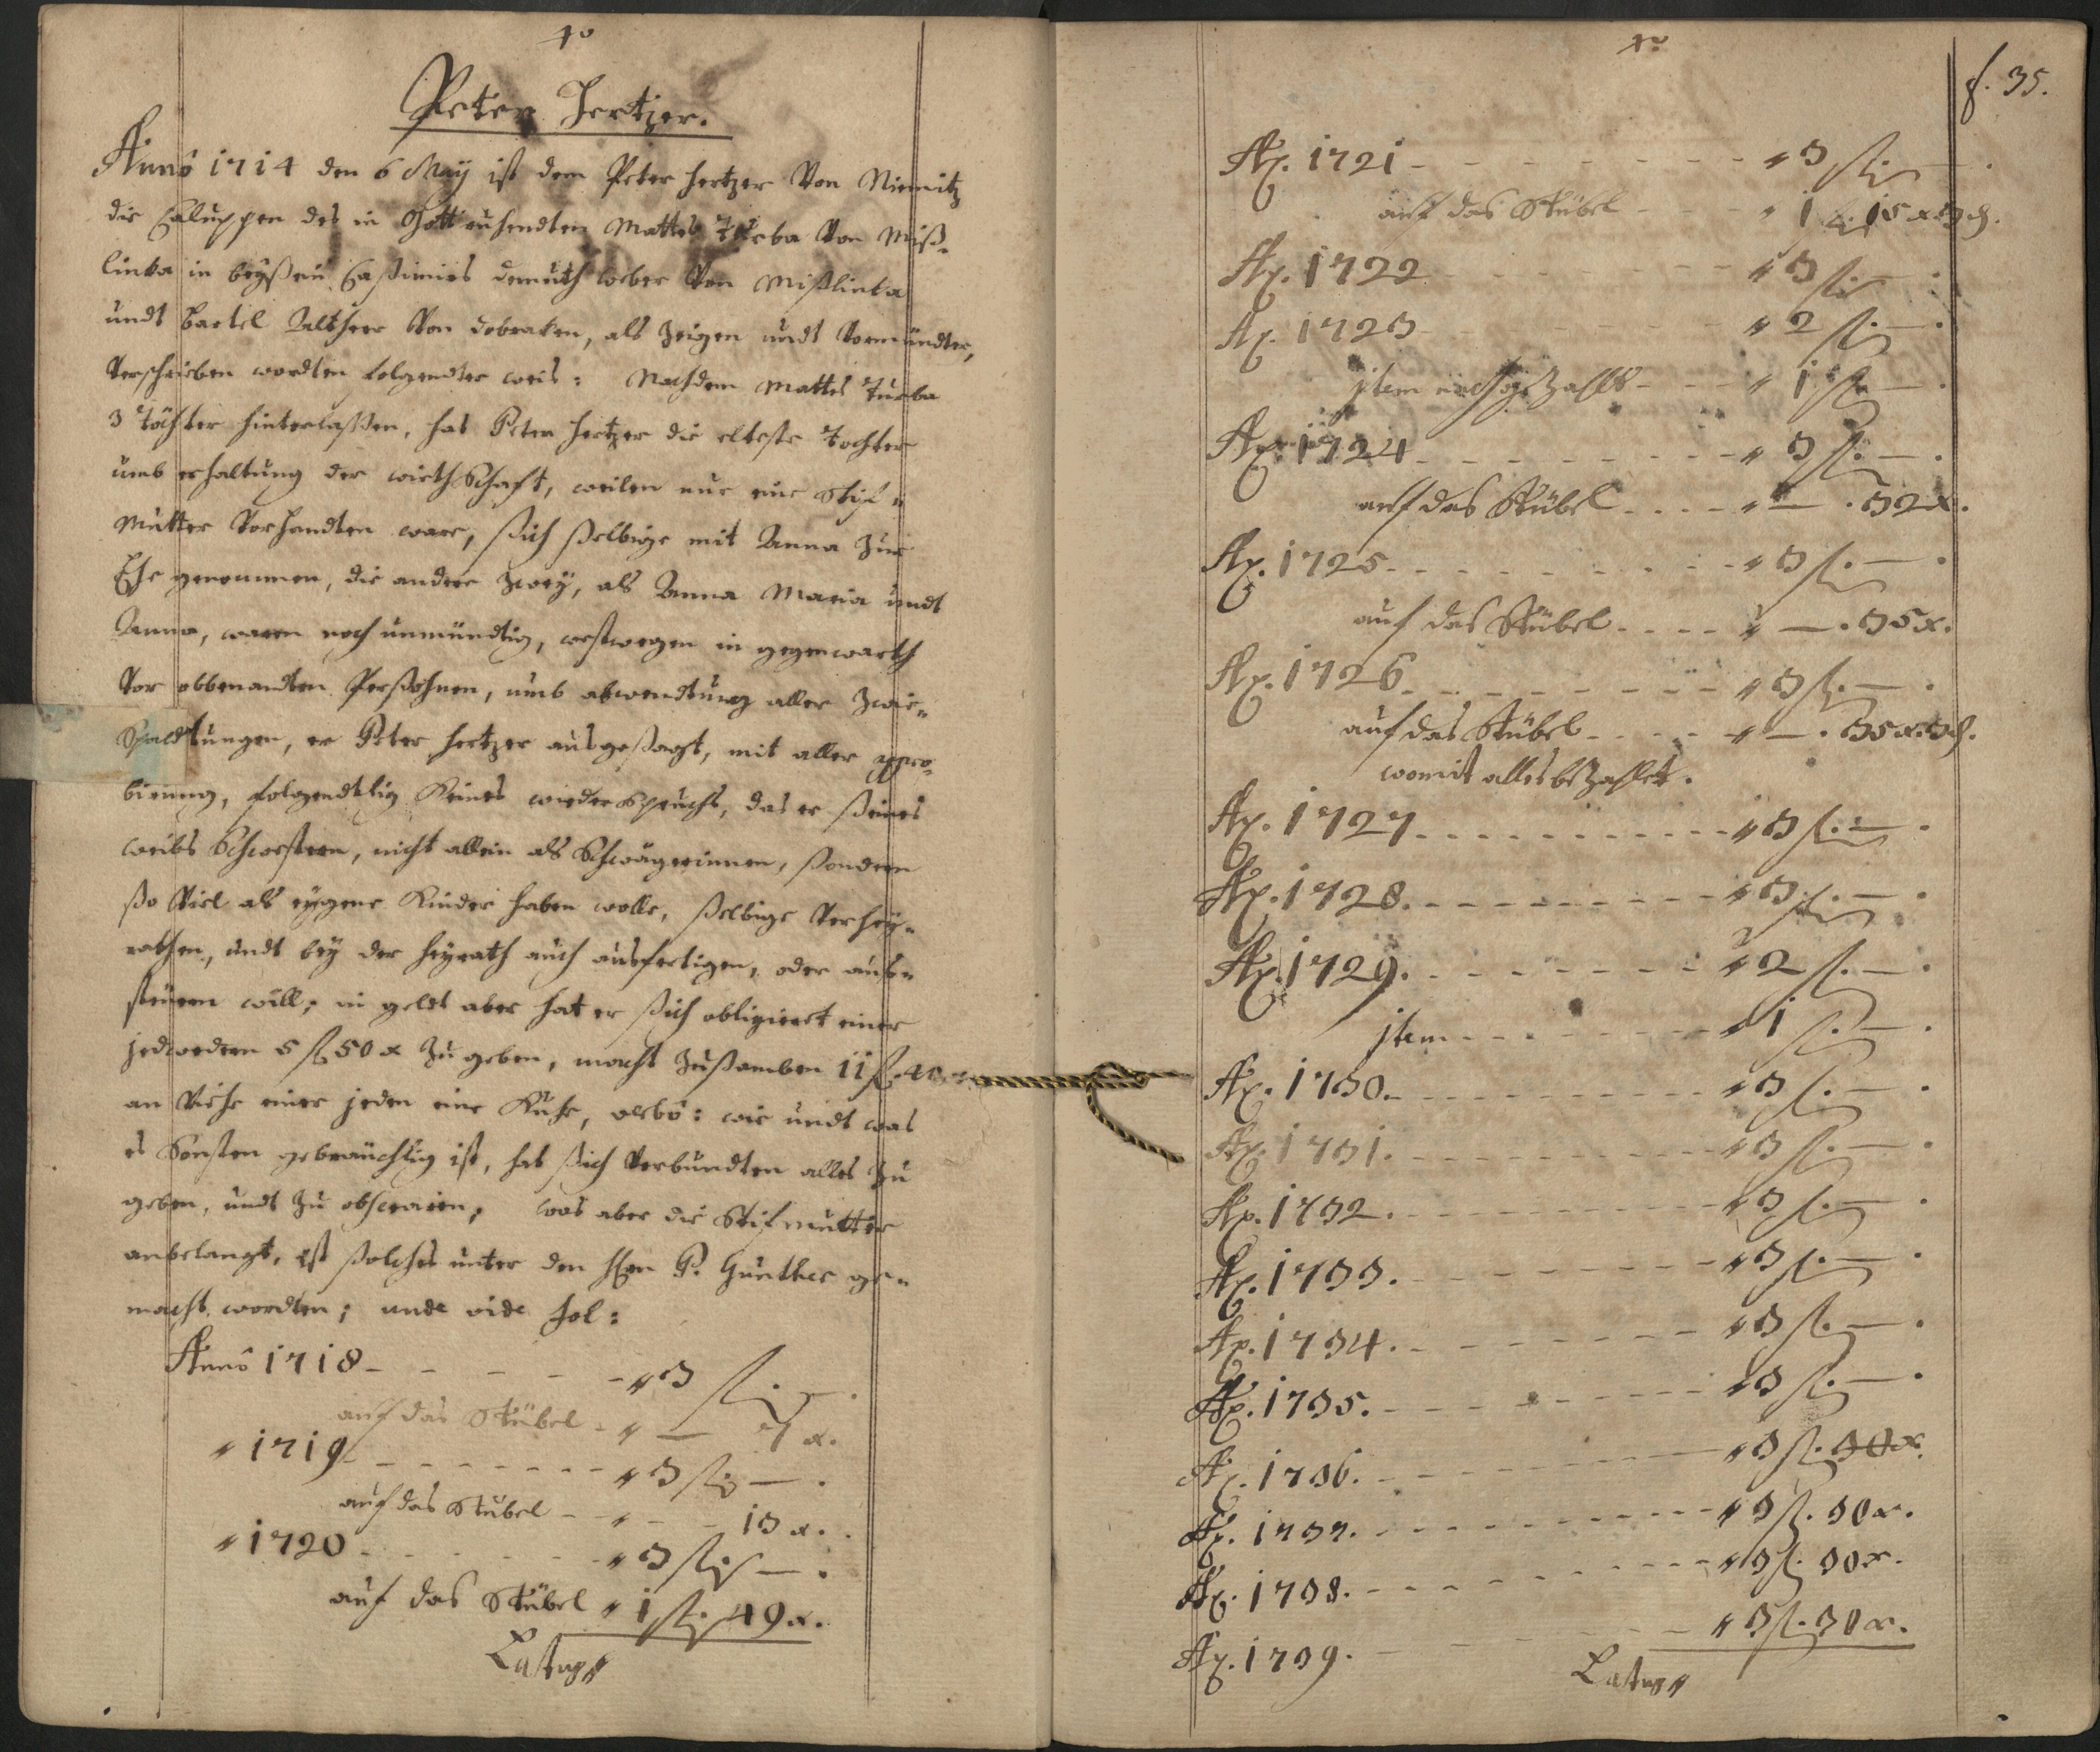 40
Peter Hertzer.
Anno 1714 den 6 May ist dem Peter Hertzer Von Niemitz
die Caluppen des in Gott ruhendten Mattes Turba Von Miß-
linka in beyßein Caßimirs demuth weber Von Mißlinka
undt Bartel Altherr Von dobraken, als Zeigen undt Vormündter,
Verschrieben wordten folgendter weis: Nachdem Mattes Turba
3 Töchter hinterlaßen, hat Peter Hertzer die elteste Tochter
umb erhaltung der wirthschaft, weilen nur eine Stif-
Mutter Vorhandten ware, ßich ßelbige mit Anna Zur
Ehe genommen, die andere Zwey, als Anna Maria undt
Anna, waren noch unmündtig, westwegen in gegenwarth
Vor obbenandten Perßohnen, umb abwendtung aller Zwie-
Spaldtungen, er Peter Hertzer ausgeßagt, mit aller appro-
birung, folgendtlig Keines wiederspruchs, das er ßeines
weibs Schwestern, nicht allein als Schwägerinnen, ßondern
ßo Viel als eygene Kinder haben wolle, ßelbige Verhey-
rathen, undt bey der Heyrath auch ausfertigen, oder auß-
steuern will; in geldt aber hat er ßich obligieret einer
jedwedern 5 fl 50 x Zu geben, macht Zußamben 11 fl 40
an Viehe einer jeden eine Kuhe, wie undt was
es Sonsten gebräuchlig ist, hat ßich Verbundten alles Zu
geben, undt Zu observiren; was aber die Stifmutter
anbelangt, ist ßolches unter den Hen P. Gunther ge-
macht wordten; unde vide fol:
Anno 1718 - - - - - " 3 fl. — .
auf das Stübel - " — 7 x.
" 1719 - - - - - - - " 3 fl. — .
auf das Stübel - - " - - 13 x.
" 1720 - - - - - - " 3 fl. — .
auf das Stübel " 1 fl. 49 x.
Latus "
40
f. 35.
Ao. 1721 - - - - - - - " 3 fl. — .
auf das Stübel - - - " 1 fl. 15 x 3 d.
Ao. 1722 - - - - - - - " 3 fl. — .
Ao. 1723 - - - - - - - " 2 fl. — .
jtem - - - " 1 fl. — .
Ao. 1724 - - - - - - - " 3 fl. — .
auf das Stübel - - - - " — . 32 x.
Ao. 1725 - - - - - - - " 3 fl. — .
auf das Stübel - - - - " — . 35 x.
Ao. 1726 - - - - - - - " 3 fl. — .
auf das Stübel - - - - " — . 35 x. 3 d.
womit alles beZahlet.
Ao. 1727 - - - - - - - " 3 fl. — .
Ao. 1728. - - - - - - - " 3 fl. — .
Ao. 1729. - - - - - - - " 2 fl. — .
jtem - - - - - - - " 1 fl. — .
Ao. 1730. - - - - - - - " 3 fl. — .
Ao. 1731. - - - - - - - " 3 fl. — .
Ao. 1732. - - - - - - - " 3 fl. — .
Ao. 1733. - - - - - - - " 3 fl. — .
Ao. 1734. - - - - - - - " 3 fl. — .
Ao. 1735. - - - - - - - " 3 fl. — .
Ao. 1736. - - - - - - - " 3 fl. 30 x.
Ao. 1737. - - - - - - - " 3 fl. 30 x.
Ao. 1738. - - - - - - - " 3 fl. 30 x.
Ao. 1739. - - - - - - - " 3 fl. 30 x.
Latus "